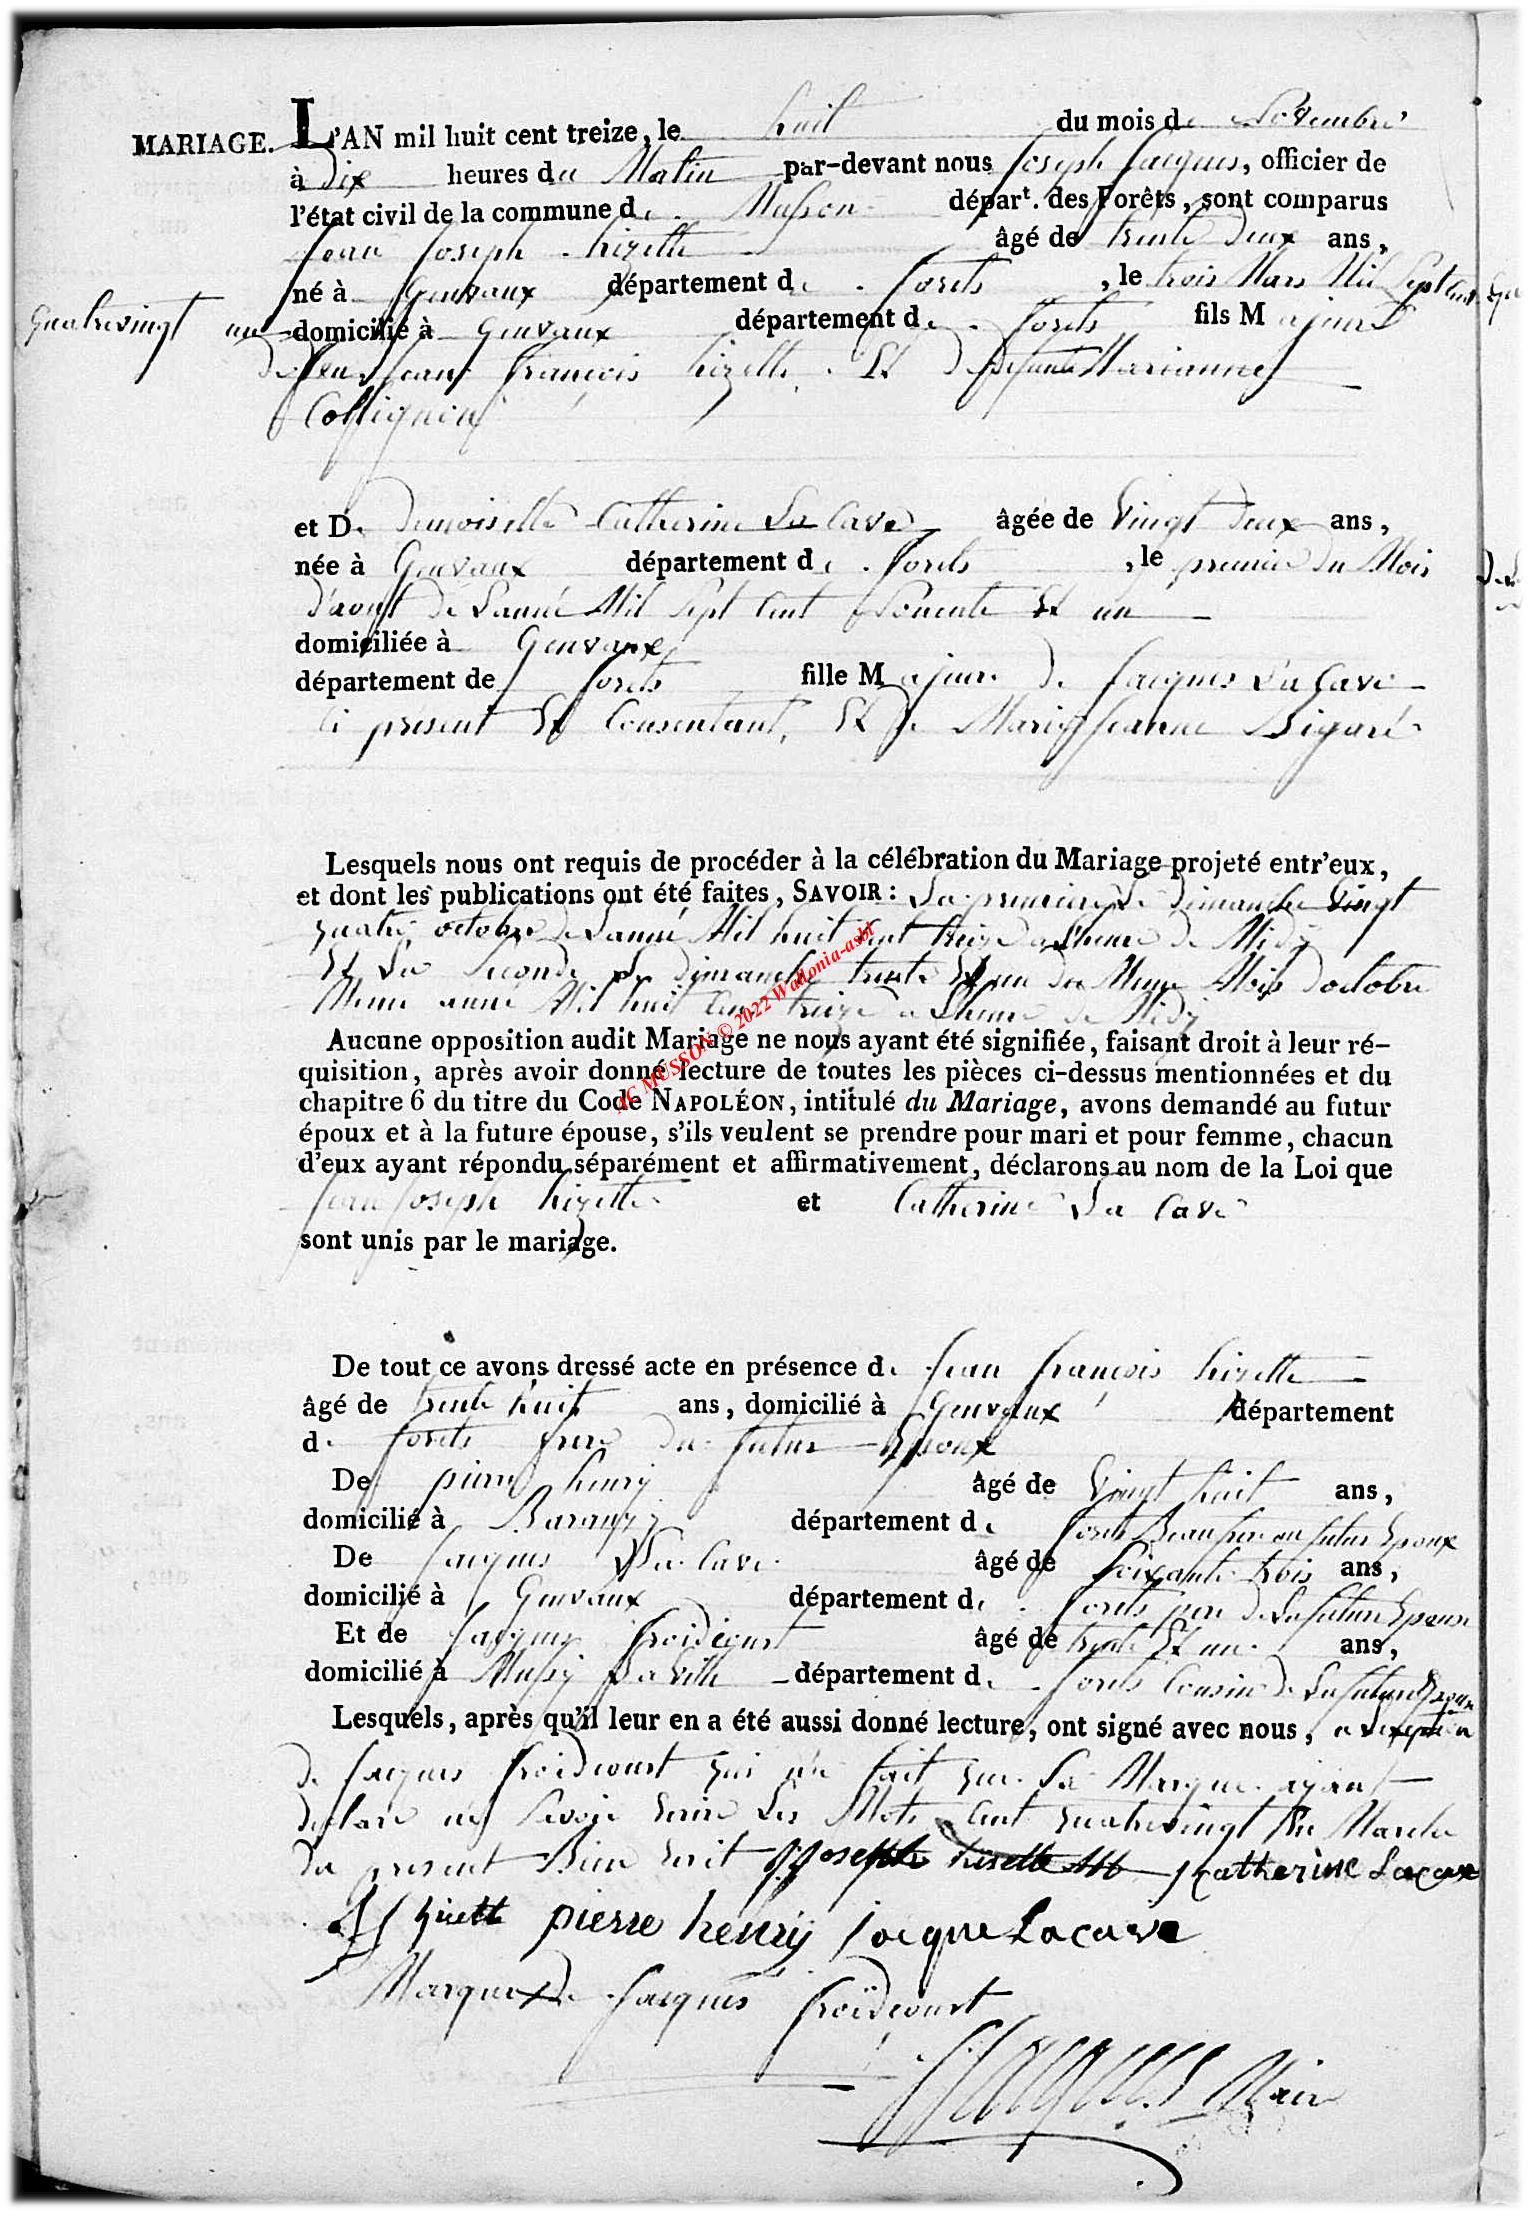 MARIAGE. L'AN mil huit cent treize, le huit du mois de Novembre
à dix heures du Matin par-devant nous Joseph Jacques, officier de
l'état civil de la commune de Musson départ. des Forêts, sont comparus
Jean Joseph hizette âgé de trente deux ans,
né à Genvaux département de forets, le trois Mars Mil Sept cent
quatrevingt un domicilié à Genvaux département de forets fils Majeur
de feu Jean françois hizette Et de defunte Marianne
Collignon
et De demoiselle Catherine La Cave âgée de Vingt deux ans,
née à Genvaux département de forets, le premier du Mois
d'aout de L'année Mil Sept Cent Nonente Et un
domiciliée à Genvaux
département de forets fille Majeure de Jacques La Cave
Ci présent Et Consentant, Et de Marie Jeanne Bigaré
Lesquels nous ont requis de procéder à la célébration du Mariage projeté entr'eux,
et dont les publications ont été faites, SAVOIR : La premiere Le dimanche Vingt
quatre octobre de L'année Mil huit Cent treize a L'heure de Midy
Et La Seconde Le dimanche trente Et un du Meme Mois d'octobre
Meme année Mil huit Cent treize a L'heure de Midy
Aucune opposition audit Mariage ne nous ayant été signifiée, faisant droit à leur ré-
quisition, après avoir donné lecture de toutes les pièces ci-dessus mentionnées et du
chapitre 6 du titre du Code NAPOLÉON, intitulé du Mariage, avons demandé au futur
époux et à la future épouse, s'ils veulent se prendre pour mari et pour femme, chacun
d'eux ayant répondu séparément et affirmativement, déclarons au nom de la Loi que
Jean Joseph hizette et Catherine La Cave
sont unis par le mariage.
De tout ce avons dressé acte en présence de Jean françois hizette
âgé de trente huit ans, domicilié à Genvaux département
de forets frere du futur Epoux
De pierre henry âgé de Vingt huit ans,
domicilié à Baranzy département de forets Beaufrere au futur Epoux
De Jacques La Cave âgé de Soixante trois ans,
domicilié à Genvaux département de forets pere de La future Epouse
Et de Jacques froidcourt âgé de trente Et un ans,
domicilié à Mussy La Ville département de forets Cousin de La future Epouse
Lesquels, après qu'il leur en a été aussi donné lecture, ont signé avec nous, a L'exception
de Jacques froidcourt qui n'a fait que Sa Marque ayant
declaré ne Savoir Ecrire Les Mots Cent quatrevingt
du present Bien Ecrit J joseph hisette Catherine Lacave
hisette pierre henry jacque Lacave
Marque de Jacques froidcourt
J Jacques Maire
AC MUSSON © 2022 Wallonia-asbl